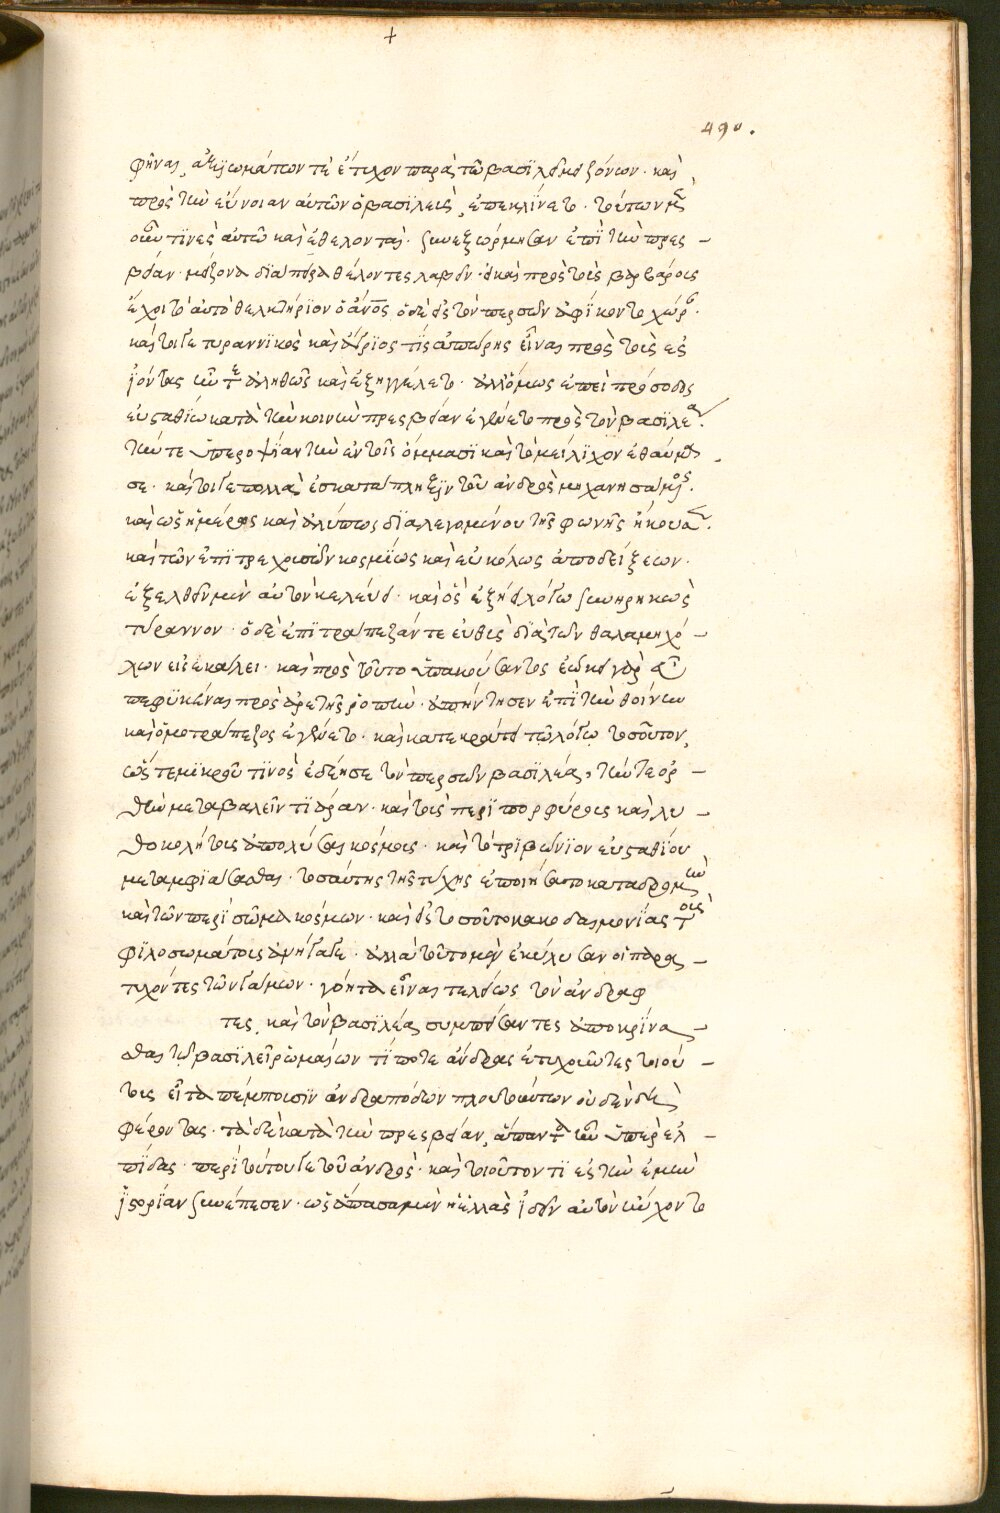 +
490.
φῆναι, ἀξιωμάτων τὲ ἔτυχον παρὰ τῶ βασιλεῖ μειζόνων· καὶ
πρὸς τὴν εὔνοιαν αὐτῶν ὁ βασιλεὺς, ἐπεκλίνετο· τούτων μὲν
οὖν τινὲς αὐτῶ καὶ ἐθελονταὶ· συνεξώρμησαν ἐπὶ τὴν πρεσ-
βείαν· μείζονα διάπειρα θέλοντες λαβεῖν· εἰ καὶ πρὸς τοὺς βαρβάρους
ἔχοι τὸ αὐτὸ θελκτήριον ὁ ἄνος· ὁ δὲ ἐς τὸν περσῶν ἀφίκοντο χώρον·
καὶ τοίγε τυραννικὸς καὶ ἄγριος τίς ἀπώρης εἶναι πρὸς τοὺς εἰσ
ϊόντας ἦν τε ἀληθῶς καὶ ἐξηγγέλετο· ἀλλ' ὅμως ἐπεὶ πρόσοδος
εὐσταθίω κατὰ τὴν κοινὴν πρεσβείαν ἐγένετο πρὸς τὸν βασιλέα·
τήν τε ὑπεροψίαν τὴν ἐν τοῖς ὄμμασι καὶ τὸ μείλιχον ἐθαύμα-
σε· καὶ τοίγε πολλὰ ἐς κατάπληξιν τοῦ ἀνδρὸς μηχανησάμενος·
καὶ ὡς ἡμέρως καὶ ἀλύπως διαλεγομένου τῆς φωνῆς ἤκουσεν·
καὶ τῶν ἐπιτρεχουσῶν κοσμίως καὶ εὐκόλως ἀποδείξεων·
ἐξελθεῖν μὲν αὐτὸν κελεύει· καὶ ὃς ἐξῄει λόγω συνηρηκὼς
τύραννον· ὁ δὲ ἐπὶ τράπεζάν τε εὐθὺς διὰ τῶν θαλαμηχό-
χων εἰσεκάλει· καὶ πρὸς τοῦτο ὑπακούσαντος ἐώκει γὰρ εὖ
πεφυκέναι πρὸς ἀρετῆς ῥοπὴν· ἀπήντησεν ἐπὶ τὴν θοίνην
καὶ ὁμοτράπεζος ἐγένετο· καὶ κατεκράτει τῷ λόγω τοσοῦτον,
ὥστε μικροῦ τινὸς ἐδέησε τὸν περσῶν βασιλέα, τήν τε ὀρ-
θὴν μεταβαλεῖν τιάραν· καὶ τοὺς περὶ πορφύρους καὶ λι-
θοκολήτους ἀπολύσαι κόσμους· καὶ τὸ τριβώνιον εὐσταθίου
μεταμφιάσασθαι· τοσαύτης τῆς τύχης ἐποιήσατο καταδρομὴν
καὶ τῶν περὶ σῶμα κόσμων· καὶ ἐς τοσοῦτο κακοδαιμονίας τοὺς
φιλοσωμάτους ἀνήγαγε· ἀλλὰ τοῦτο μὲν ἐκώλυσαν οἱ παρα-
τυχόντες τῶν μάγων· γόητα εἶναι τελέως τὸν ἄνδρα φ
τες, καὶ τὸν βασιλέα συμπείσαντες ἀποκρίνα-
σθαι τῷ βασιλεῖ ῥωμαίων τί ποτε ἄνδρας εὐτυχοῦντες τοιού-
τους εἶτα πέμπουσιν ἀνδραπόδων πλουτούντων οὐδὲν δια
φέροντας· τὰ δὲ κατὰ τὴν πρεσβείαν, ἅπαντα ἦν ὑπὲρ ἐλ-
πίδας· περὶ τούτου γε τοῦ ἀνδρὸς· καὶ τοιοῦτον τι ἐς τὴν ἐμὴν
ἱστορίαν συνέπεσεν· ὡς ἅπασα μὲν ἡ ἑλλὰς ἰδεῖν αὐτὸν εὔχοντο